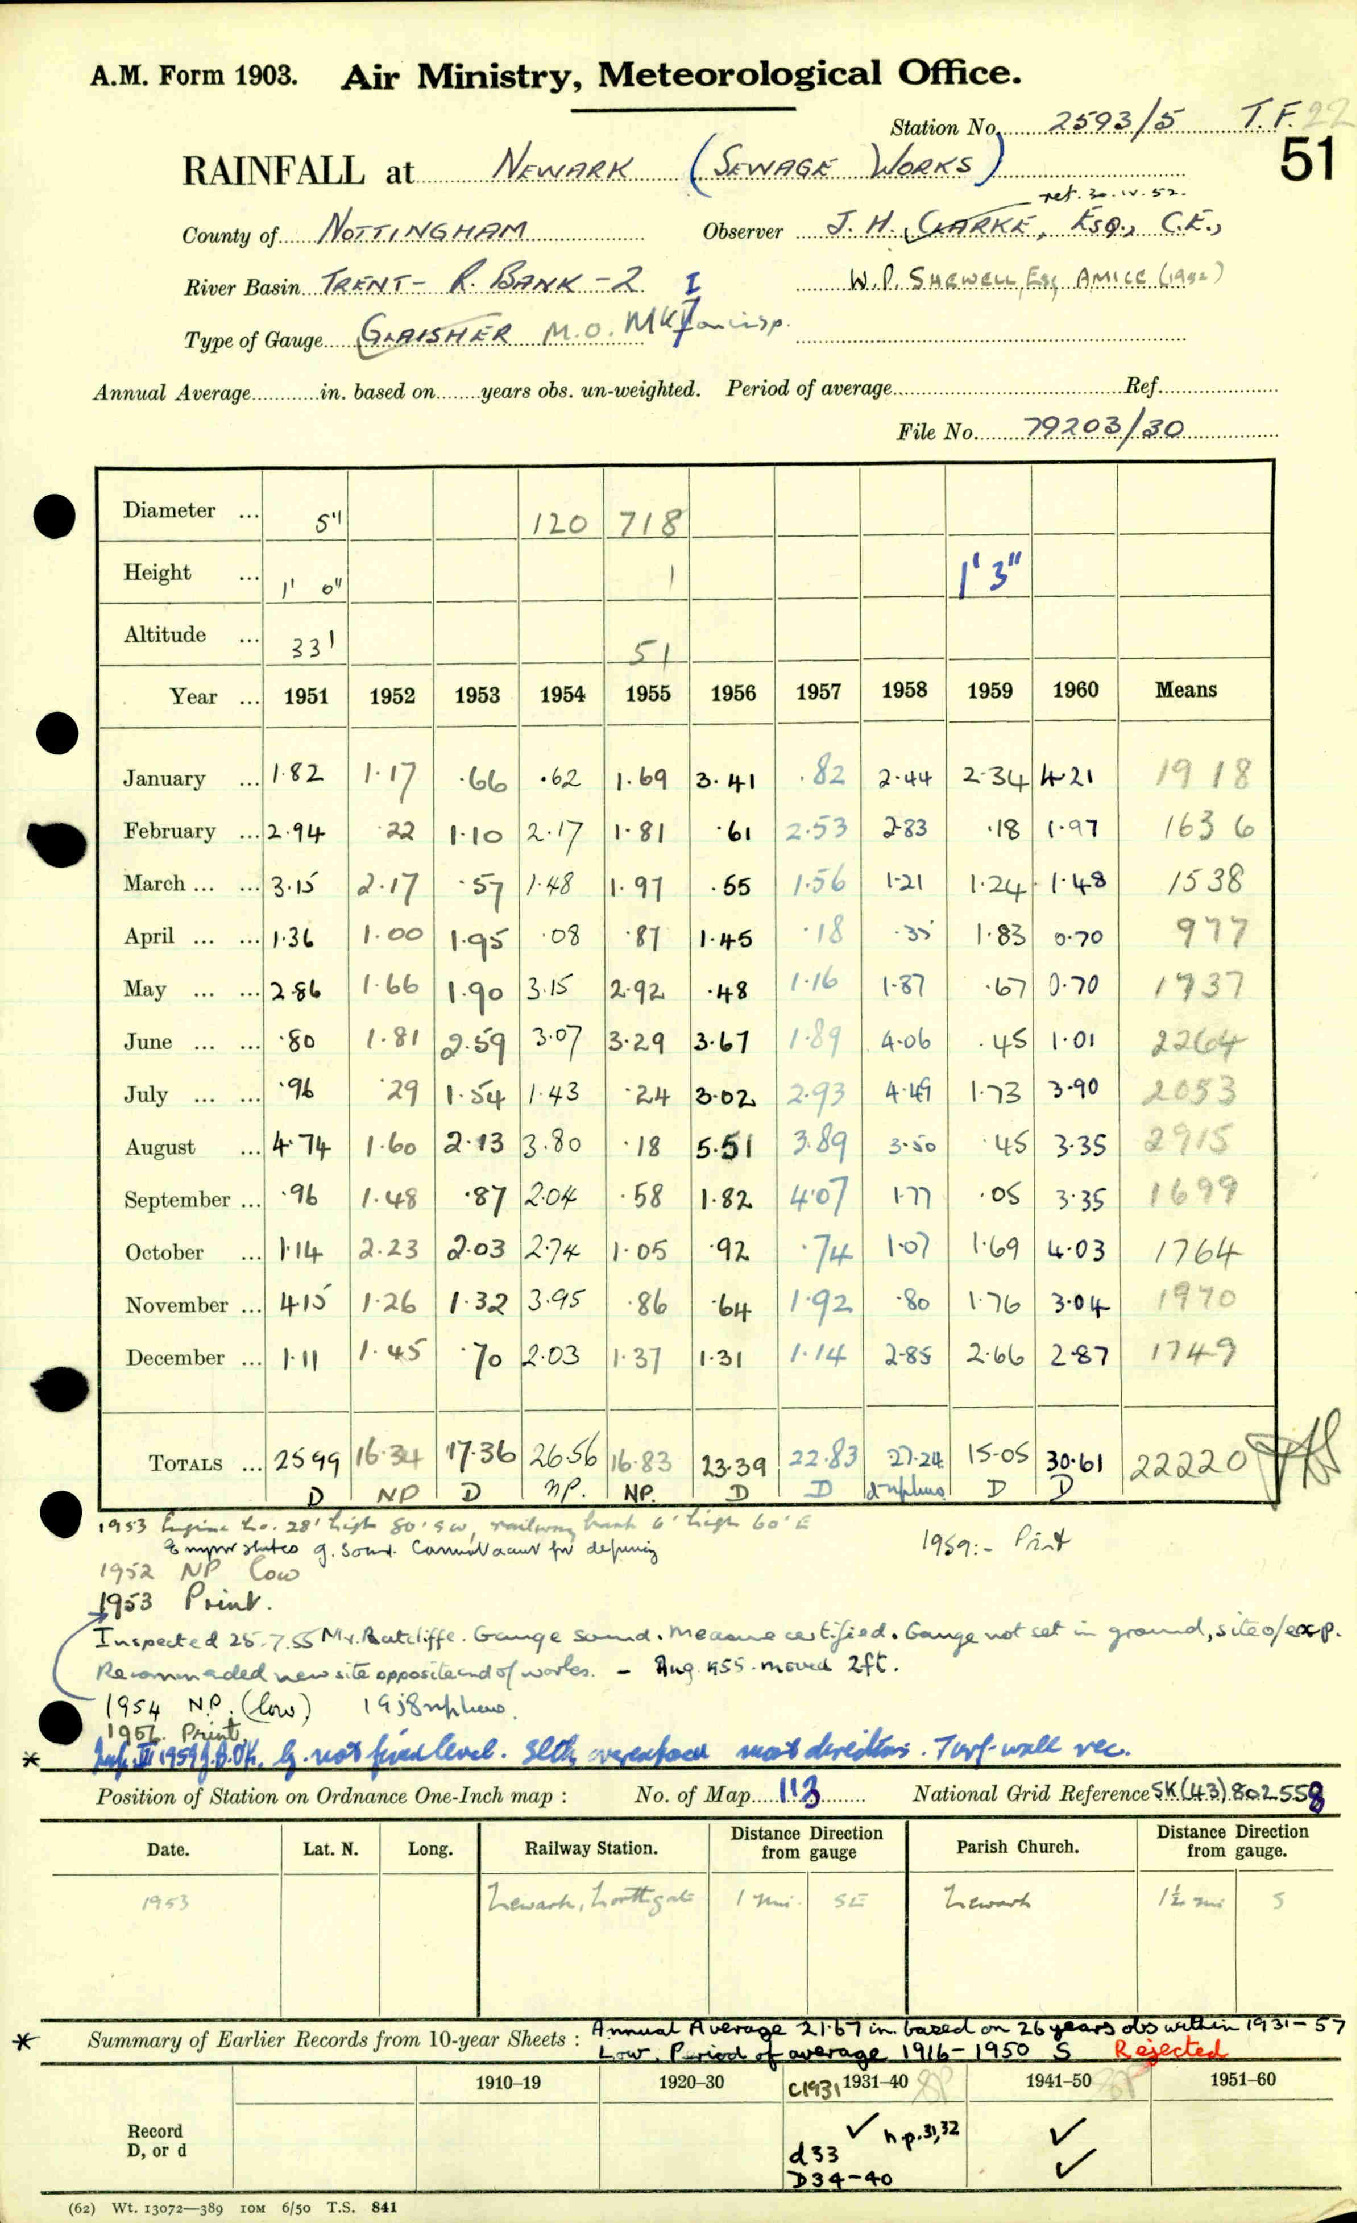 A.M. Form 1903. Air Ministry, Meteorological Office.
Station No. 2593/5 T.F. 22
51
RAINFALL at NEWARK (SEWAGE WORKS)
ret. 30.IV.52.
County of NOTTINGHAM Observer J. H. CLARKE, ESQ., C.E.,
River Basin TRENT - R. BANK - 2 I W.P. SHEWELL, Esq AMICE (1952)
Type of Gauge GLAISHER M.O. MKII
Annual Average in. based on years obs. un-weighted. Period of average Ref.
File No. 79203/30
Diameter ... 5" 120 718
Height ... 1' 0" 1 1' 3"
Altitude ... 33' 51
Year ... 1951 1952 1953 1954 1955 1956 1957 1958 1959 1960 Means
January ... 1.82 1.17 .66 .62 1.69 3.41 .82 2.44 2.34 4.21 1918
February ... 2.94 .22 1.10 2.17 1.81 .61 2.53 2.83 .18 1.97 1636
March ... ... 3.15 2.17 .57 1.48 1.97 .55 1.56 1.21 1.24 1.48 1538
April ... ... 1.36 1.00 1.95 .08 .87 1.45 .18 .35 1.83 0.70 977
May ... ... 2.86 1.66 1.90 3.15 2.92 .48 1.16 1.87 .67 0.70 1737
June ... ... .80 1.81 2.59 3.07 3.29 3.67 1.89 4.06 .45 1.01 2264
July ... ... .96 .29 1.54 1.43 .24 3.02 2.93 4.49 1.73 3.90 2053
August ... 4.74 1.60 2.13 3.80 .18 5.51 3.89 3.50 .45 3.35 2915
September ... .96 1.48 .87 2.04 .58 1.82 4.07 1.77 .05 3.35 1699
October ... 1.14 2.23 2.03 2.74 1.05 .92 .74 1.07 1.69 4.03 1764
November ... 4.15 1.26 1.32 3.95 .86 .64 1.92 .80 1.76 3.04 1970
December ... 1.11 1.45 .70 2.03 1.37 1.31 1.14 2.85 2.66 2.87 1749
TOTALS ... 25.99 16.34 17.36 26.56 16.83 23.39 22.83 27.24 15.05 30.61 22220
D NP D NP. NP. D D D D
1953 Engine ho. 28' high 80' SW, railway bank 6' high 60' E
g. sound. Cannot acct for
1959:- Print
1952 NP Low
1953 Print.
Inspected 25.7.55 Mr. Ratcliffe. Gauge sound. Measure certified. Gauge not set in ground, site o/exp.
Recommended new site opposite end of works. - Aug. 1955 moved 2ft.
1954 N.P. (low) 1958
1956 Print.
* 1959 g. not fixed level. overexposed most directions. Turf-wall rec.
Position of Station on Ordnance One-Inch map : No. of Map 113 National Grid Reference SK(43) 802558
Date. Lat. N. Long. Railway Station. Distance from Direction gauge Parish Church. Distance from Direction gauge.
1953 Newark, Northgate 1 mi. SE Newark 1½ mi S
* Summary of Earlier Records from 10-year Sheets : Annual Average 21.67 in. based on 26 years obs within 1931-57
Low. Period of average 1916-1950 S Rejected
1910–19 1920–30 C1931 1931–40 1941–50 1951–60
Record D, or d ✓ n.p. 31,32 ✓
d33
D34-40 ✓
(62) Wt. 13072—389 10M 6/50 T.S. 841